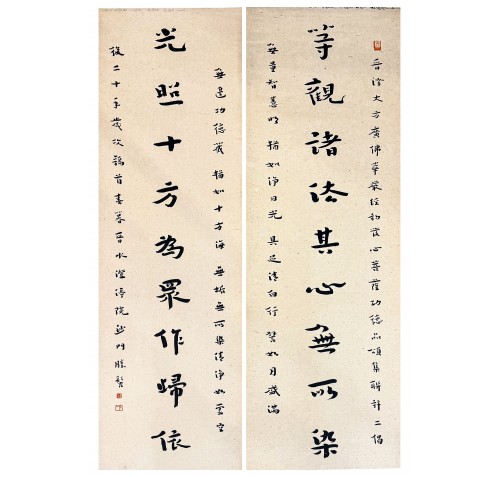 晉譯大方廣佛華嚴經初發心菩薩功德品頌集聯并二偈
等觀諸法其心無所染
無量智慧明猶如淨日光具足清白行譬如月盛滿
無邊功德藏猶如十方海無垢無所染清淨如虛空
光照十方為眾作歸依
後二十年歲次鶉首春暮晉水澄渟院沙門勝髻